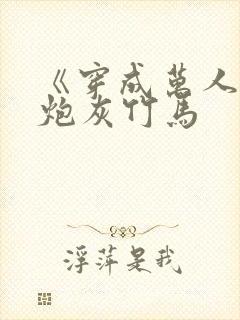 《穿成萬人
炮灰竹馬
浮萍是我